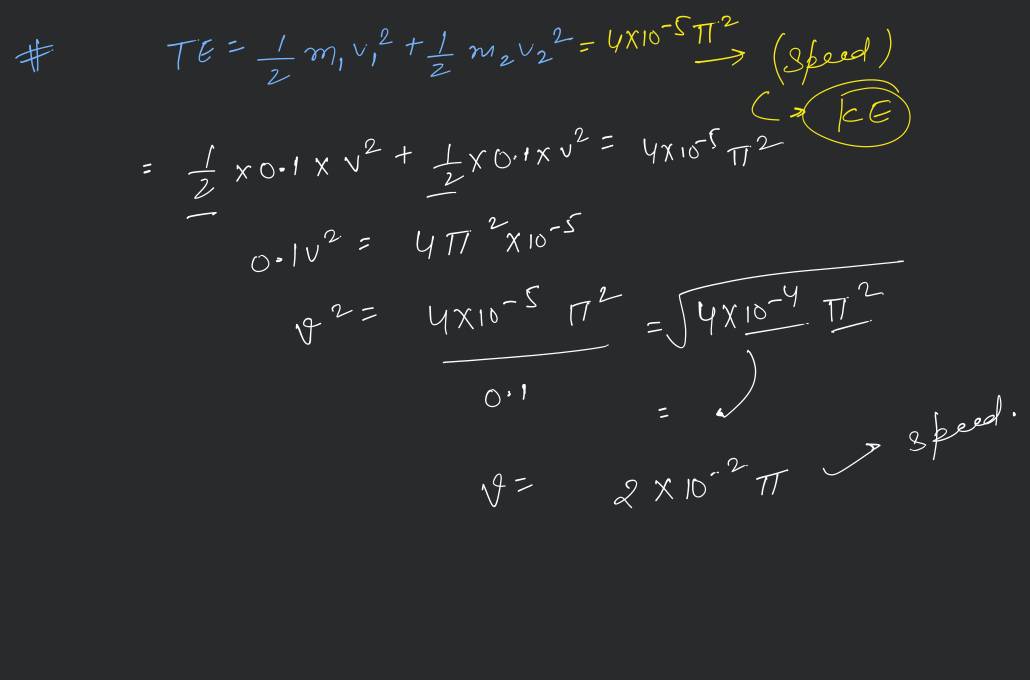 # TE = 1/2 m₁v₁² + 1/2 m₂v₂² = 4×10⁻⁵π² → (speed)
↪ KE
= 1/2 × 0.1 × v² + 1/2 × 0.1 × v² = 4×10⁻⁵ π²
0.1v² = 4π² × 10⁻⁵
v² = 4×10⁻⁵ π² / 0.1 = √(4×10⁻⁴ π²)
=
v = 2 × 10⁻² π → speed.